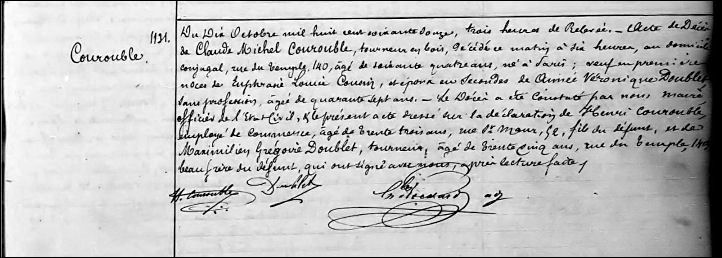 1131.
Courouble.
Du Dix Octobre mil huit cent soixante douze, trois heures de Relevée. – Acte de Décès
de Claude Michel Courouble, tourneur en bois, décédé ce matin à six heures, au domicile
conjugal, rue du Temple, 140, âgé de soixante quatre ans, né à Paris; veuf en première
noces de Euphrasie Louise Cousin, et époux en secondes de Aimée Véronique Doublet
sans profession, âgée de quarante sept ans. – Le Décès a été constaté par nous maire
officier de l'Etat Civil, & le présent acte dressé sur la déclaration de Henri Courouble,
employé de commerce, âgé de trente trois ans, rue St Maur, 52, fils du défunt, et de
Maximilien Grégoire Doublet, tourneur, âgé de trente cinq ans, rue du Temple, 140,
beau frère du défunt, qui ont signé avec nous, après lecture faite,
H. Courouble Doublet